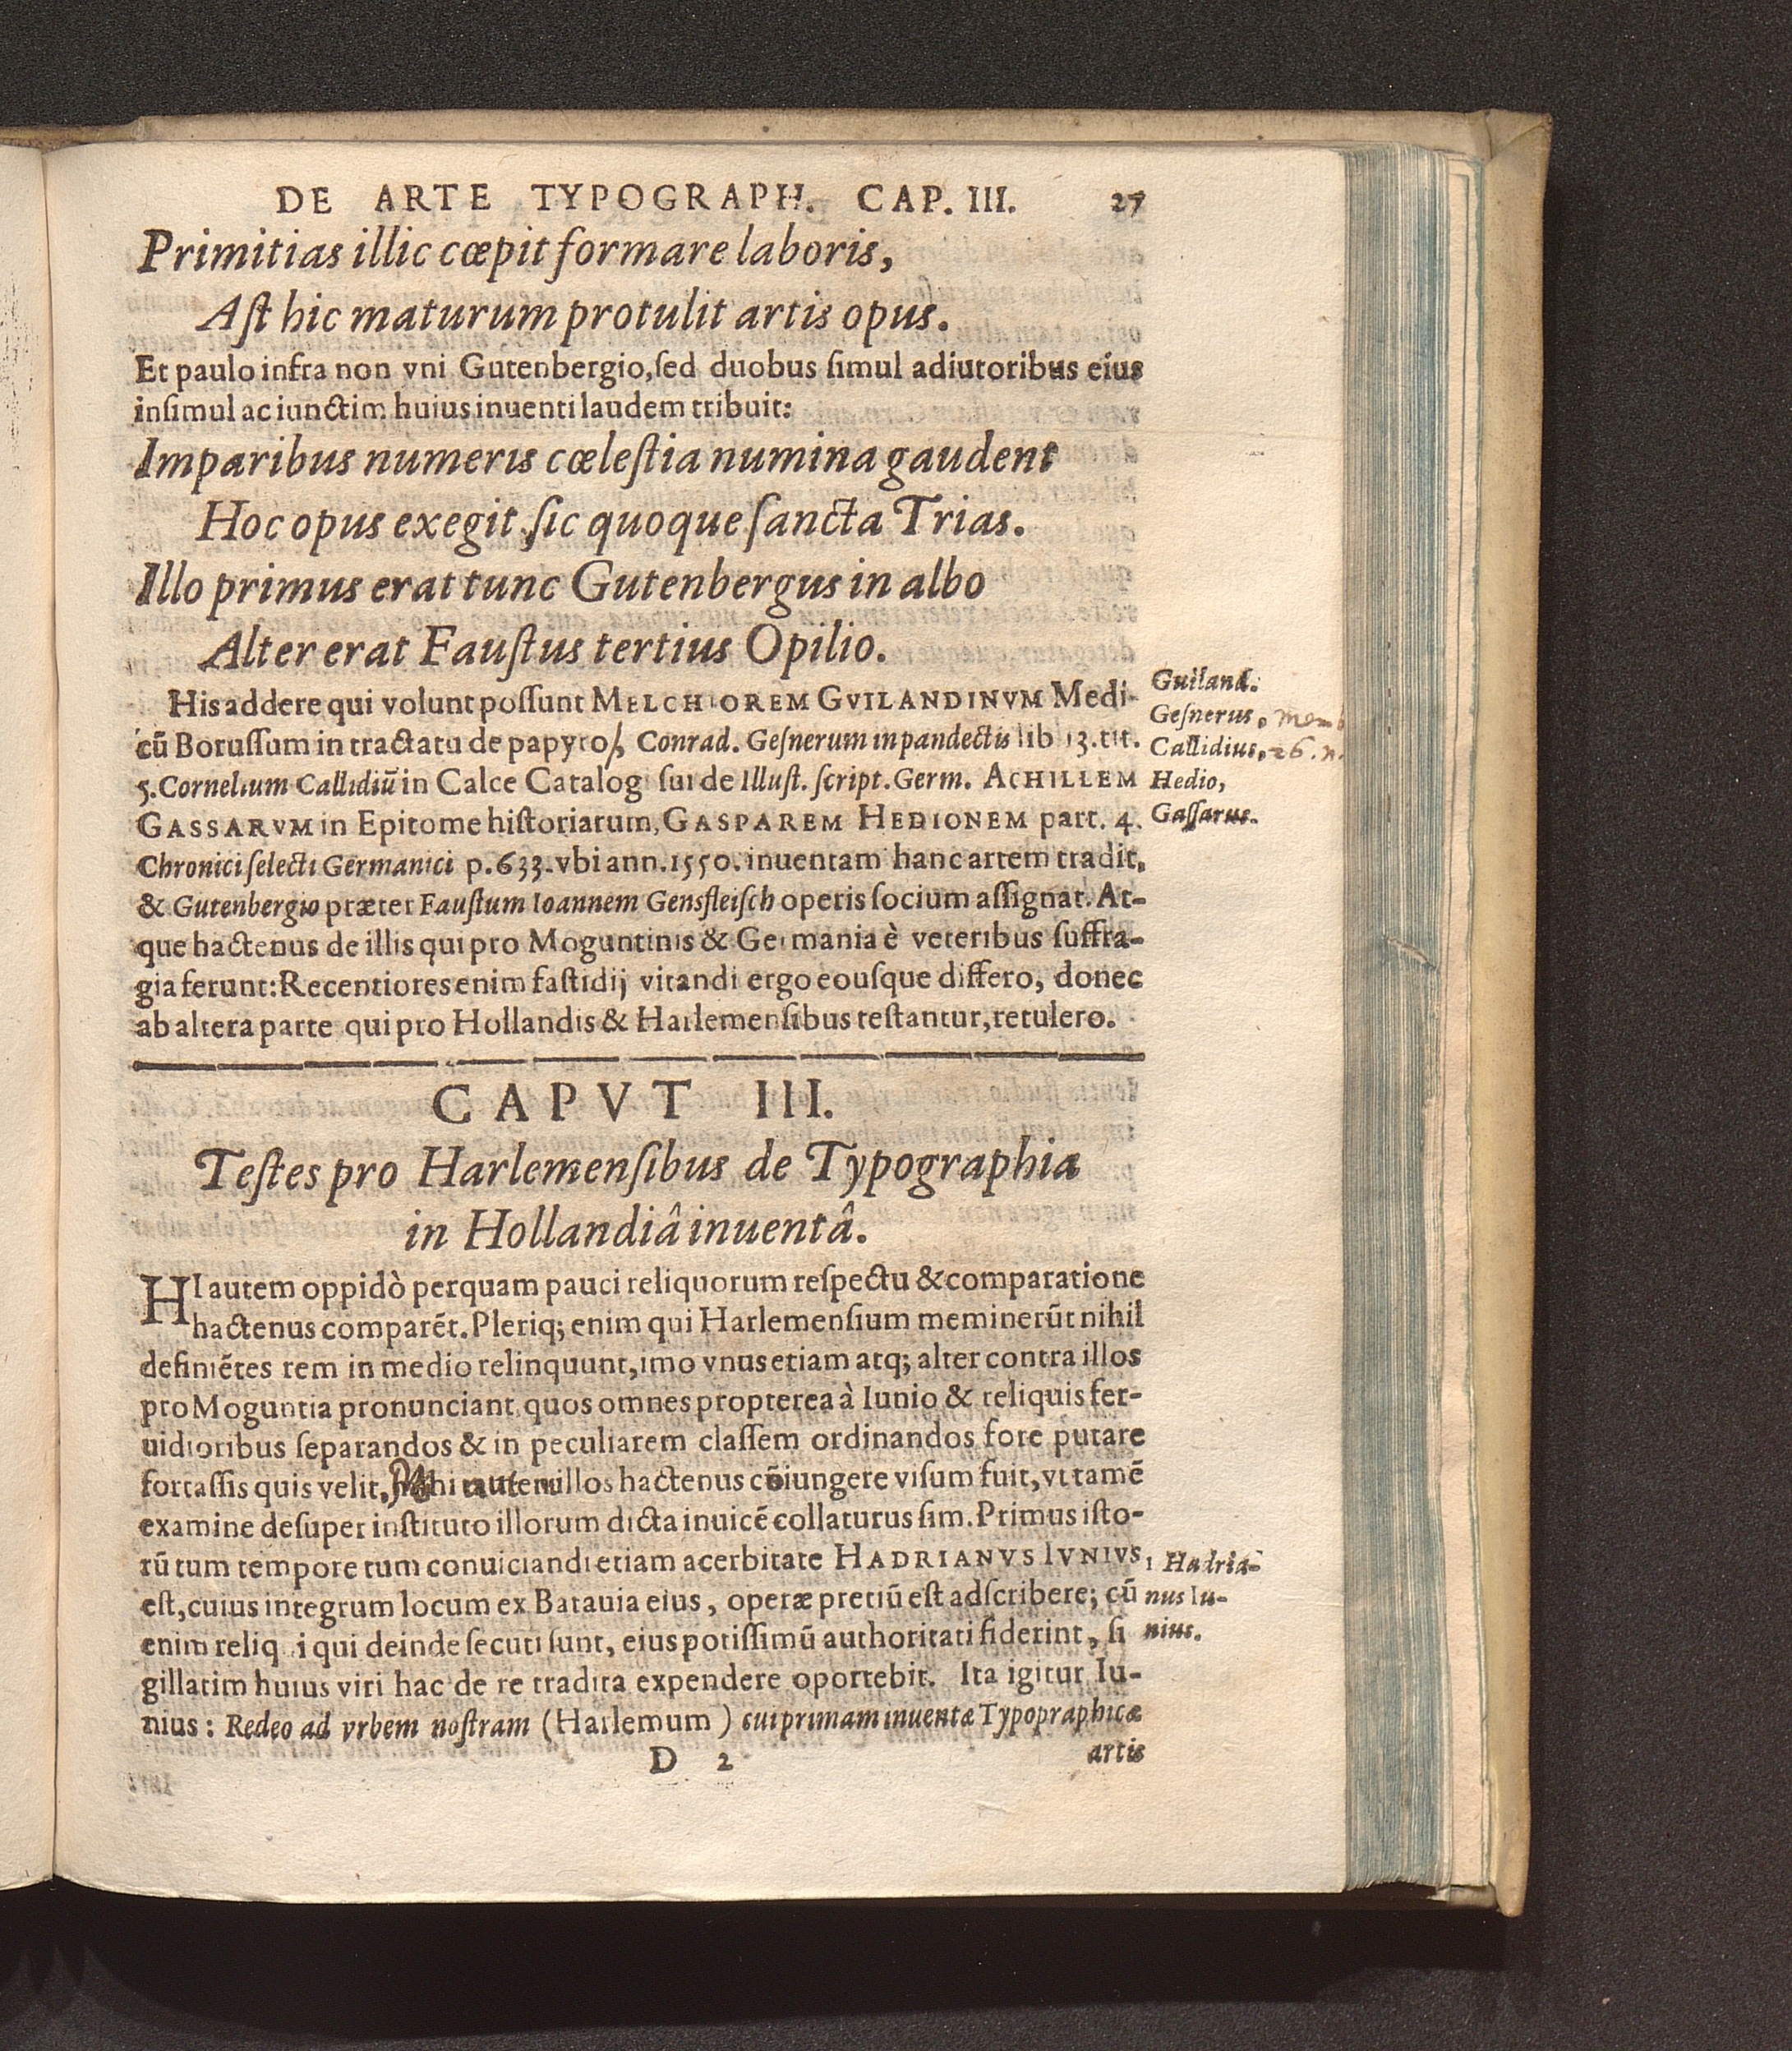 DE ARTE TYPOGRAPH. CAP. III. 27
Primitias illic cœpit formare laboris,
Aſt hic maturum protulit artis opus.
Et paulo infra non vni Gutenbergio, ſed duobus ſimul adiutoribus eius
inſimul ac iunctim huius inuenti laudem tribuit:
Imparibus numeris cœleſtia numina gaudent
Hoc opus exegit, ſic quoque ſancta Trias.
Illo primus erat tunc Gutenbergus in albo
Alter erat Fauſtus tertius Opilio.
His addere qui volunt poſſunt MELCHIOREM GVILANDINVM Medi-
cũ Boruſſum in tractatu de papyro, Conrad. Geſnerum in pandectis lib 13. tit.
5. Cornelium Callidiũ in Calce Catalogi ſui de Illuſt. ſcript. Germ. ACHILLEM
GASSARVM in Epitome hiſtoriarum, GASPAREM HEDIONEM part. 4.
Chronici ſelecti Germanici p. 633. vbi ann. 1550. inuentam hanc artem tradit,
& Gutenbergio præter Fauſtum Ioannem Gensfleiſch operis ſocium aſſignat. At-
que hactenus de illis qui pro Moguntinis & Germania è veteribus ſuffra-
gia ferunt: Recentiores enim faſtidij vitandi ergo eouſque differo, donec
ab altera parte qui pro Hollandis & Harlemenſibus teſtantur, retulero.
Guiland.
Geſnerus,
Callidius, 26. n.
Hedio,
Gaſſarus.
CAPVT III.
Teſtes pro Harlemenſibus de Typographia
in Hollandiâ inuentâ.
HI autem oppidò perquam pauci reliquorum reſpectu & comparatione
hactenus comparẽt. Pleriq; enim qui Harlemenſium meminerũt nihil
definiẽtes rem in medio relinquunt, imo vnus etiam atq; alter contra illos
pro Moguntia pronunciant, quos omnes propterea à Iunio & reliquis fer-
uidioribus ſeparandos & in peculiarem claſſem ordinandos fore putare
fortaſſis quis velit, Mihi autem illos hactenus cõiungere viſum fuit, vt tamẽ
examine deſuper inſtituto illorum dicta inuicẽ collaturus ſim. Primus iſto-
rũ tum tempore tum conuiciandi etiam acerbitate HADRIANVS IVNIVS,
eſt, cuius integrum locum ex Batauia eius, operæ pretiũ eſt adſcribere; cũ
enim reliq i qui deinde ſecuti ſunt, eius potiſſimũ authoritati fiderint, ſi
gillatim huius viri hac de re tradita expendere oportebit. Ita igitur Iu-
nius: Redeo ad vrbem noſtram (Harlemum) cui primam inuentæ Typopraphicæ
Hadria-
nus Iu-
nius.
D 2 artis